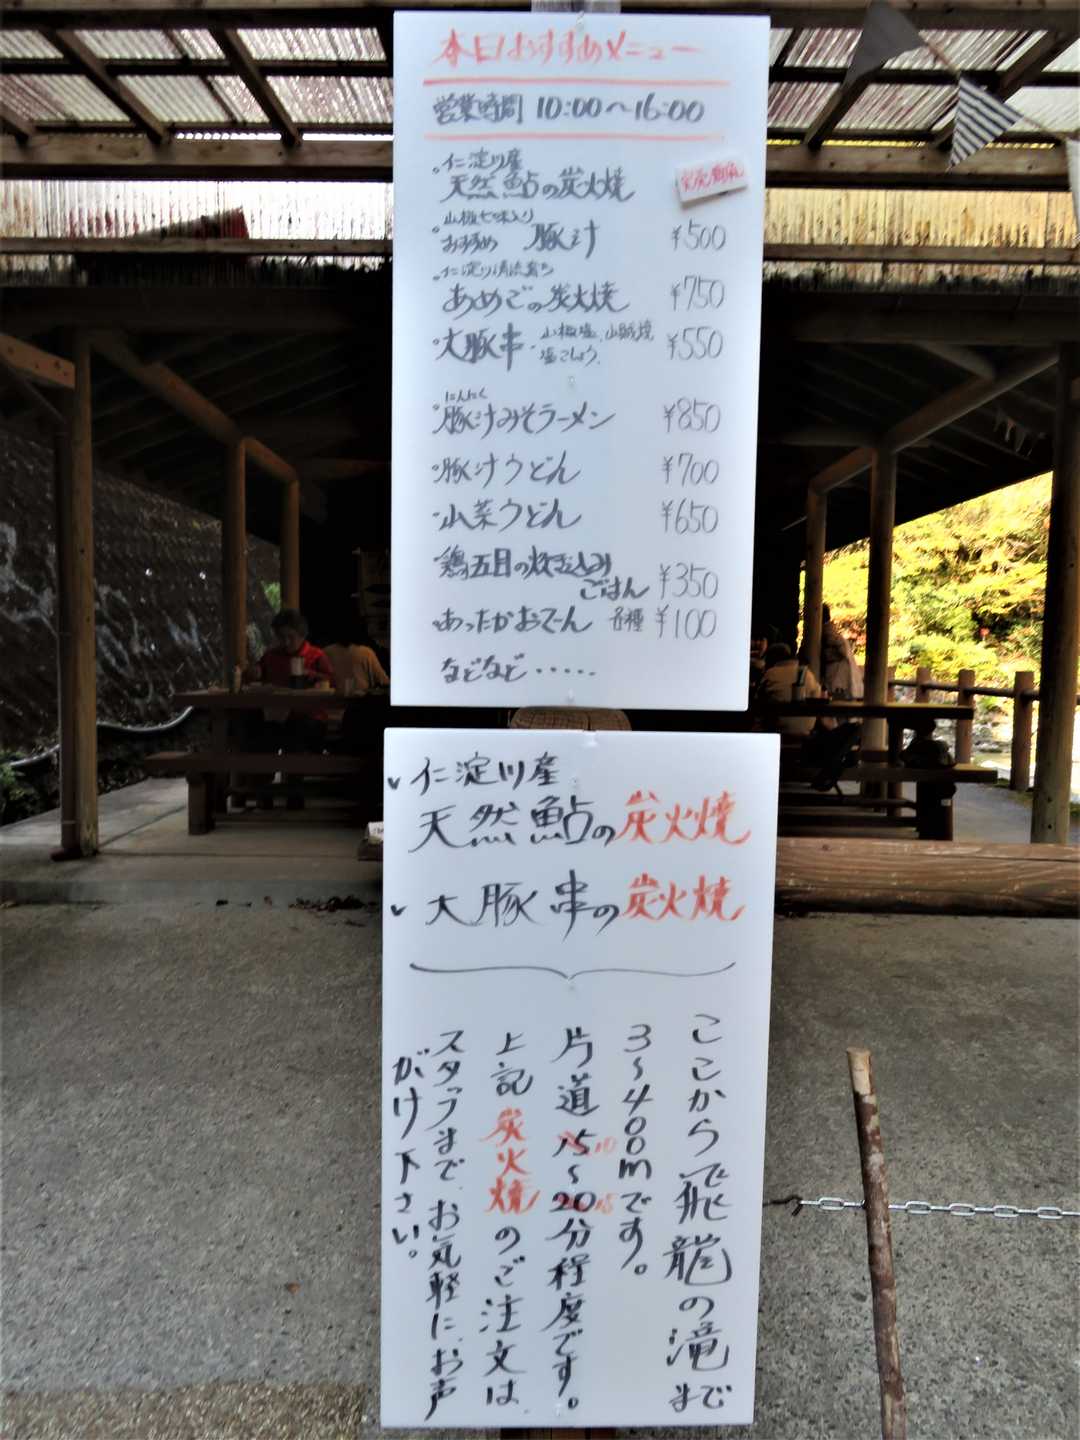 本日おすすめメニュー
営業時間 10:00〜16:00
・仁淀川産
天然鮎の炭火焼
・山椒七味入り
おすすめ 豚汁 ¥500
・仁淀川清流育ち
あめごの炭火焼 ¥750
・大豚串・山椒塩、山賊焼 ¥550
塩こしょう、
にんにく
・豚汁みそラーメン ¥850
・豚汁うどん ¥700
・山菜うどん ¥650
鶏五目の炊き込み
ごはん ¥350
・あったかおでーん 各種 ¥100
などなど・・・・・・
✓仁淀川産
天然鮎の炭火焼
✓大豚串の炭火焼
ここから飛龍の滝まで
3〜400mです。
片道15 10〜20 15分程度です。
上記炭火焼のご注文は、
スタッフまで、お気軽に、お声
がけ下さい。